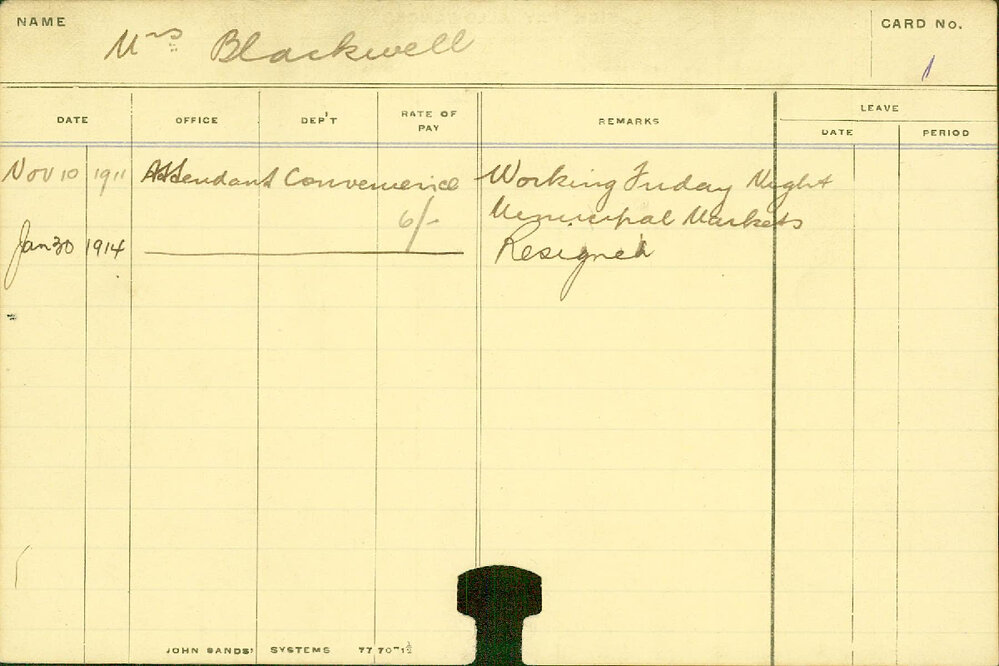 NAME Mrs Blackwell CARD No. 1
DATE OFFICE DEP'T RATE OF PAY REMARKS LEAVE
DATE PERIOD
Nov 10 1911 Attendant Convenience Working Friday Night
6/- Municipal Markets
Jan 30 1914 Resigned
JOHN SANDS' SYSTEMS 77 70